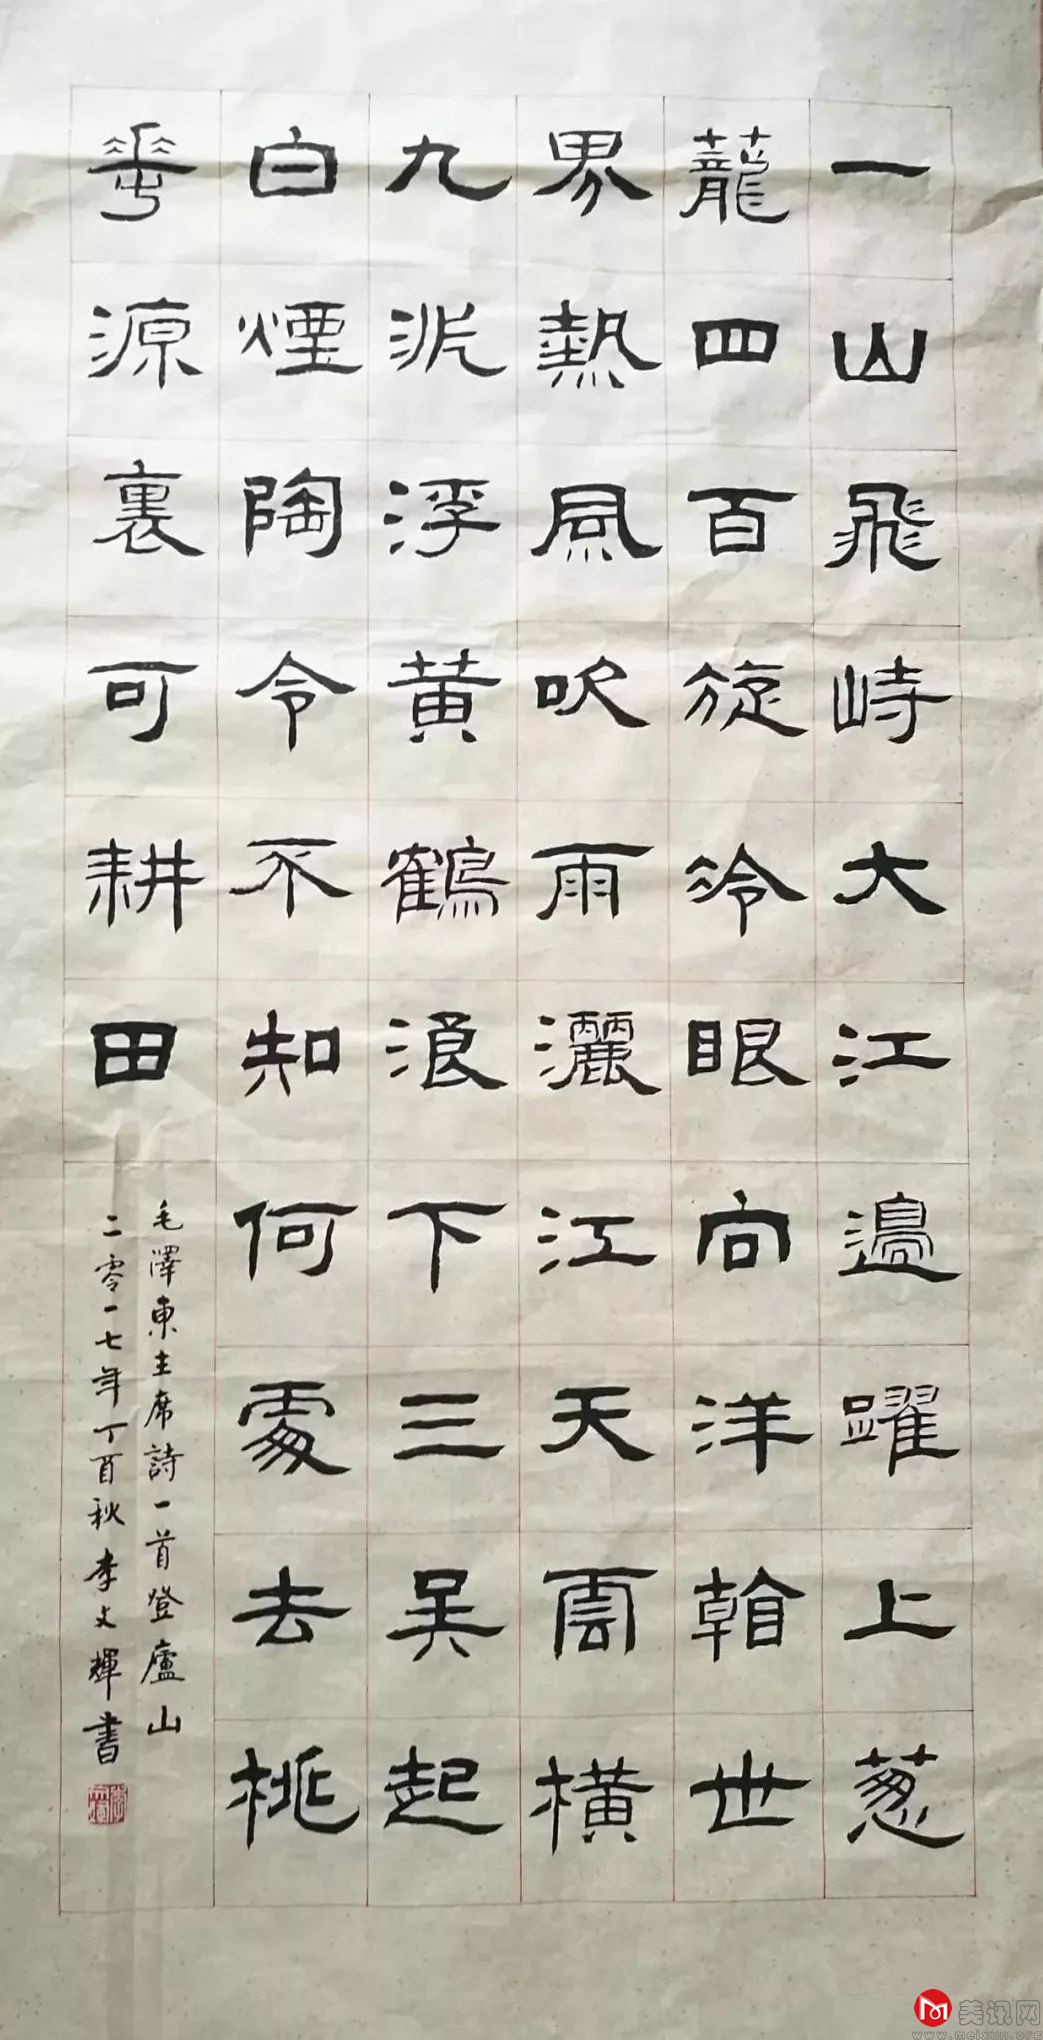 一山飛峙大江邊躍上葱
蘢四百旋冷眼向洋看世
界熱風吹雨灑江天雲橫
九派浮黄鶴浪下三吴起
白煙陶令不知何處去桃
華源裏可耕田
毛澤東主席詩一首登廬山
二零一七年丁酉秋李文輝書
美讯网
www.meixun.org